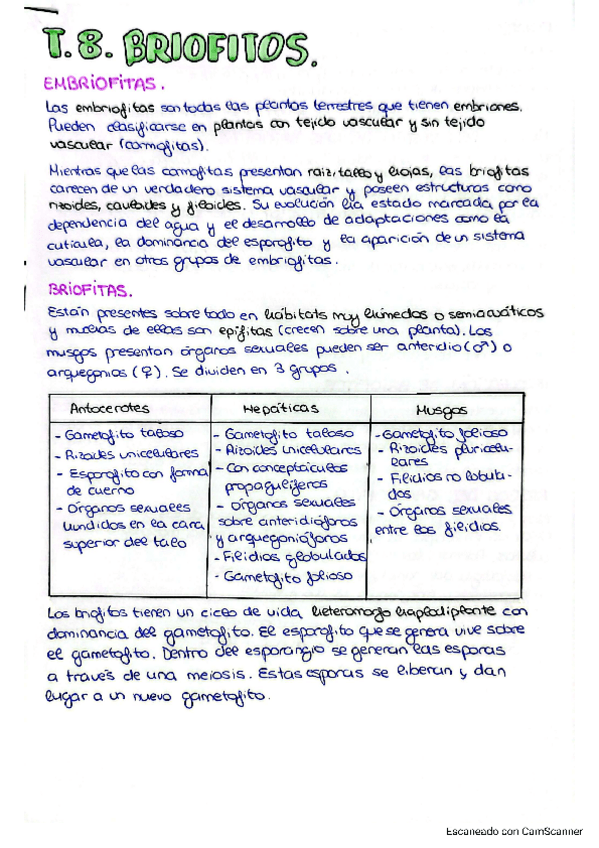 T. 8. BRIOFITOS.
EMBRIOFITAS.
Las embriofitas son todas las plantas terrestres que tienen embriones.
Pueden clasificarse en plantas con tejido vascular y sin tejido
vascular (cormofitas).
Mientras que las cormofitas presentan raiz, tallo y hojas, las briofitas
carecen de un verdadero sistema vascular y poseen estructuras como
rizoides, cauloides y filoides. Su evolución ha estado marcada por la
dependencia del agua y el desarrollo de adaptaciones como la
cutícula, la dominancia del esporofito y la aparición de un sistema
vascular en otros grupos de embriofitas.
BRIOFITAS.
Están presentes sobre todo en hábitats muy húmedos o semiacuáticos
y muchas de ellas son epífitas (crecen sobre una planta). Los
musgos presentan órganos sexuales pueden ser anteridio (♂) o
arquegonios (♀). Se dividen en 3 grupos.
Antocerotes
- Gametofito taloso
- Rizoides unicelulares
- Esporofito con forma
de cuerno
- Órganos sexuales
hundidos en la cara
superior del talo
Hepáticas
- Gametofito taloso
- Rizoides unicelulares
- Con conceptáculos
propagulíferos
- Órganos sexuales
sobre anteridióforos
y arquegonióforos
- Filidios globulados
- Gametofito folioso
Musgos
- Gametofito folioso
- Rizoides pluricelu-
lares
- Filidios no lobula-
dos
- Órganos sexuales
entre los filidios.
Los briofitos tienen un ciclo de vida heteromorfo haplodiplonte con
dominancia del gametofito. El esporofito que se genera vive sobre
el gametofito. Dentro del esporangio se generan las esporas
a través de una meiosis. Estas esporas se liberan y dan
lugar a un nuevo gametofito.
Escaneado con CamScanner